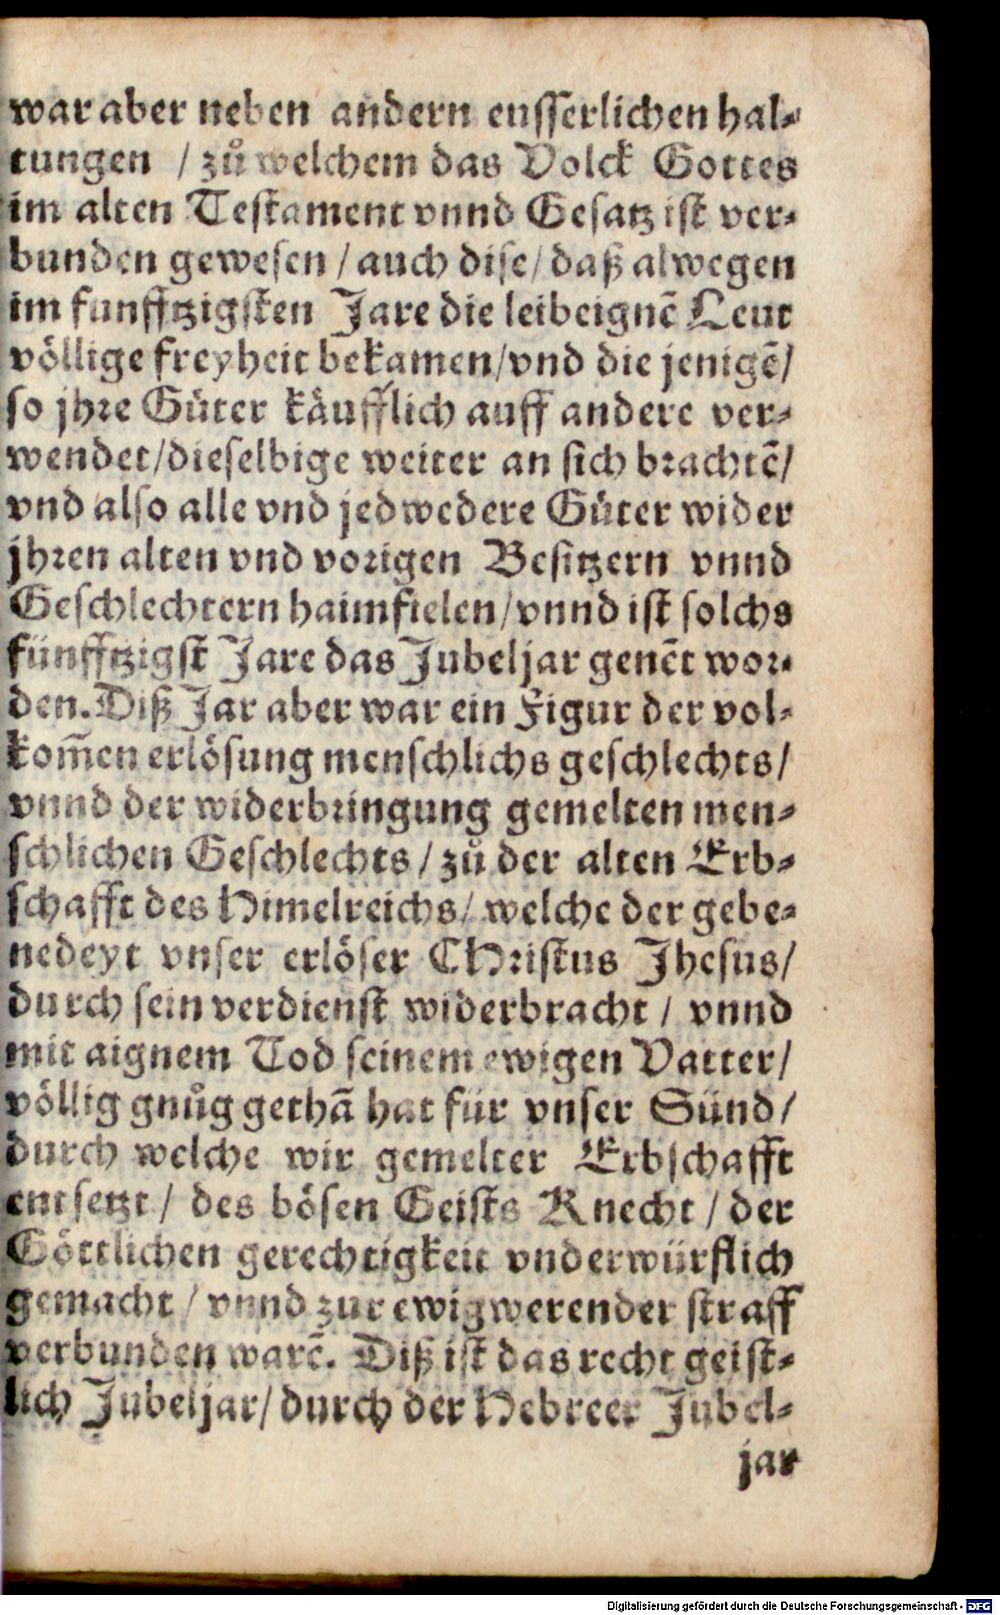 war aber neben andern eusserlichen hal-
tungen / zů welchem das Volck Gottes
im alten Testament vnnd Gesatz ist ver-
bunden gewesen / auch dise / daß alwegen
im funfftzigsten Jare die leibeignē Leut
völlige freyheit bekamen / vnd die jenigē /
so jhre Güter käufflich auff andere ver-
wendet / dieselbige weiter an sich brachtē /
vnd also alle vnd jedwedere Güter wider
jhren alten vnd vorigen Besitzern vnnd
Geschlechtern haimfielen / vnnd ist solchs
fünfftzigst Jare das Jubeljar genēt wor-
den. Diß Jar aber war ein Figur der vol-
kom̄en erlösung menschlichs geschlechts /
vnnd der widerbringung gemelten men-
schlichen Geschlechts / zů der alten Erb-
schafft des Himelreichs / welche der gebe-
nedeyt vnser erlöser CHristus Jhesus /
durch sein verdienst widerbracht / vnnd
mit aignem Tod seinem ewigen Vatter /
völlig gnůg gethā hat für vnser Sünd /
durch welche wir gemelter Erbschafft
entsetzt / des bösen Geists Knecht / der
Göttlichen gerechtigkeit vnderwürflich
gemacht / vnnd zur ewigwerender straff
verbunden warē. Diß ist das recht geist-
lich Jubeljar / durch der Hebreer Jubel-
jar
Digitalisierung gefördert durch die Deutsche Forschungsgemeinschaft - DFG